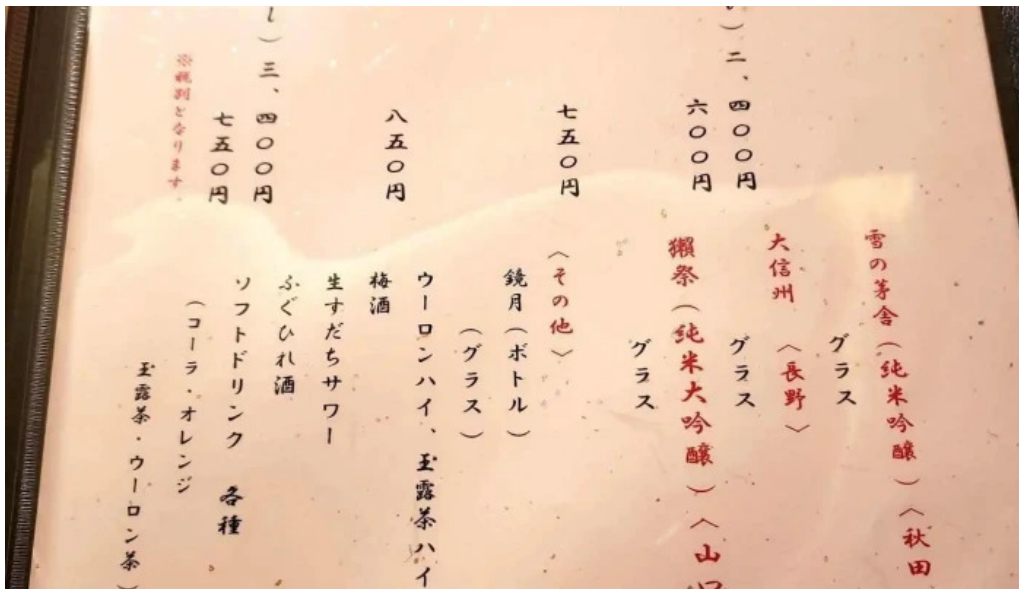 ）二、四〇〇円
六〇〇円
七五〇円
八五〇円
）三、四〇〇円
七五〇円
※税別となります
雪の茅舎（純米吟醸）〈秋田
グラス
大信州 〈長野〉
グラス
獺祭（純米大吟醸）〈山口
グラス
〈その他〉
鏡月（ボトル）
（グラス）
ウーロンハイ、玉露茶ハイ
梅酒
生すだちサワー
ふぐひれ酒
ソフトドリンク 各種
（コーラ・オレンジ
玉露茶・ウーロン茶）